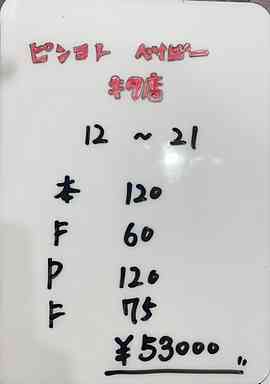 ピンヨト ベイビー
キタ店
12 ~ 21
本 120
F 60
P 120
F 75
¥53000 〃